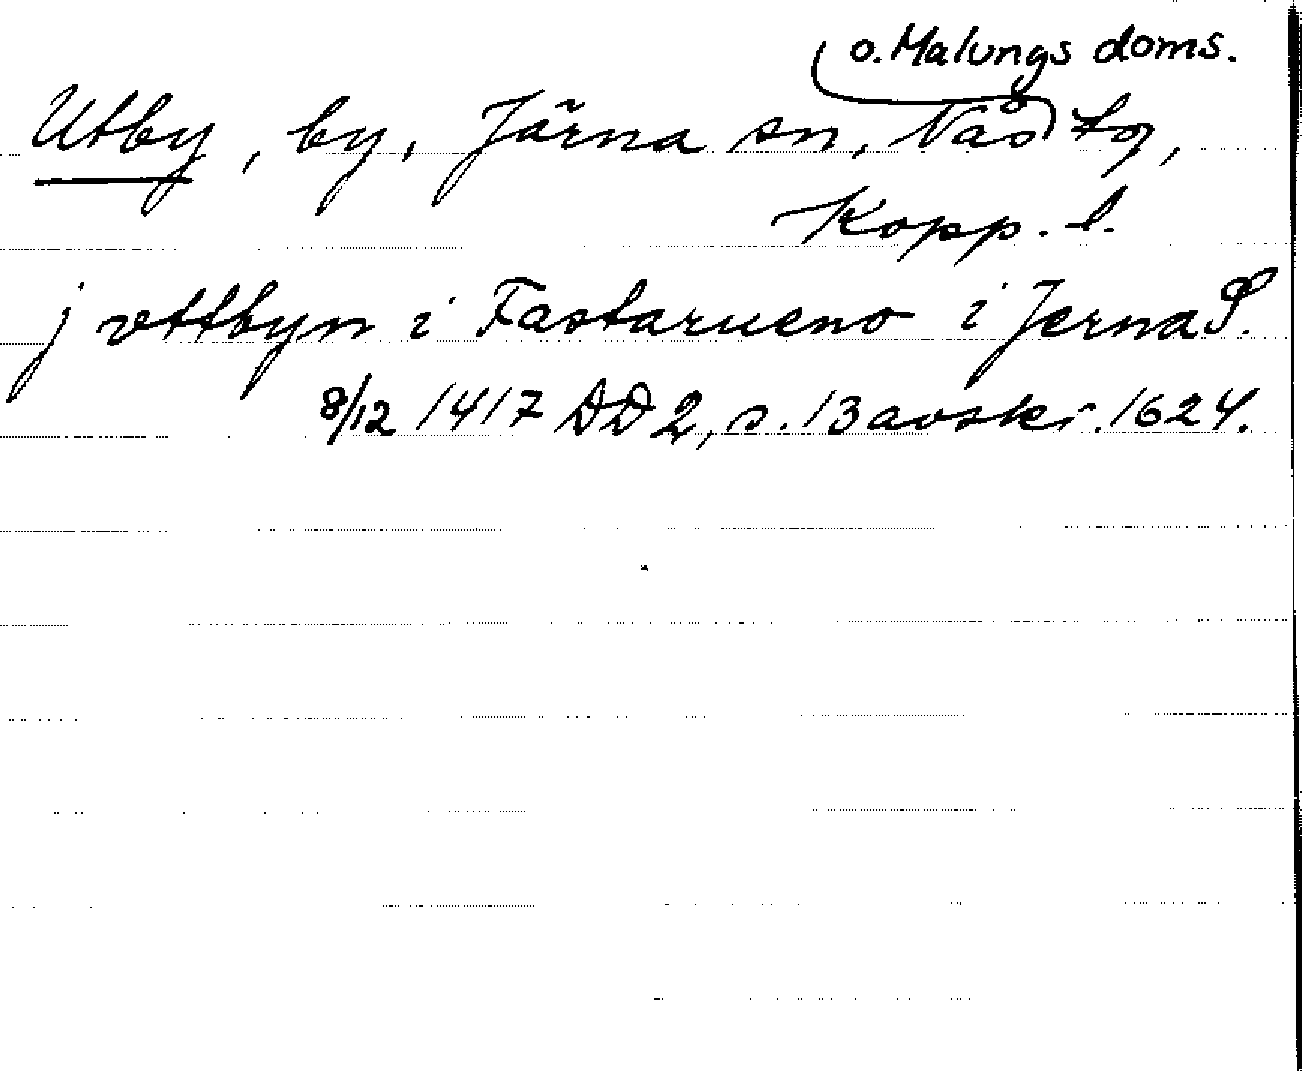 o. Malungs doms.
Utby, by, Järna sn, Nås tg,
Kopp. l.
j vttbyn i Fastarueno i Jerna S.
8/12 1417 DD 2, s. 13 avskr. 1624.